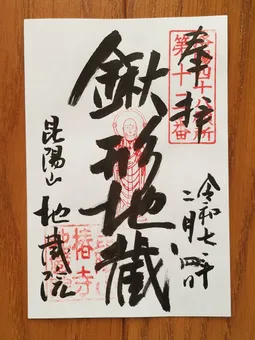 奉拝
第十二番
令和七年
二月
鍬形地蔵
昆陽山 地蔵院
椿寺